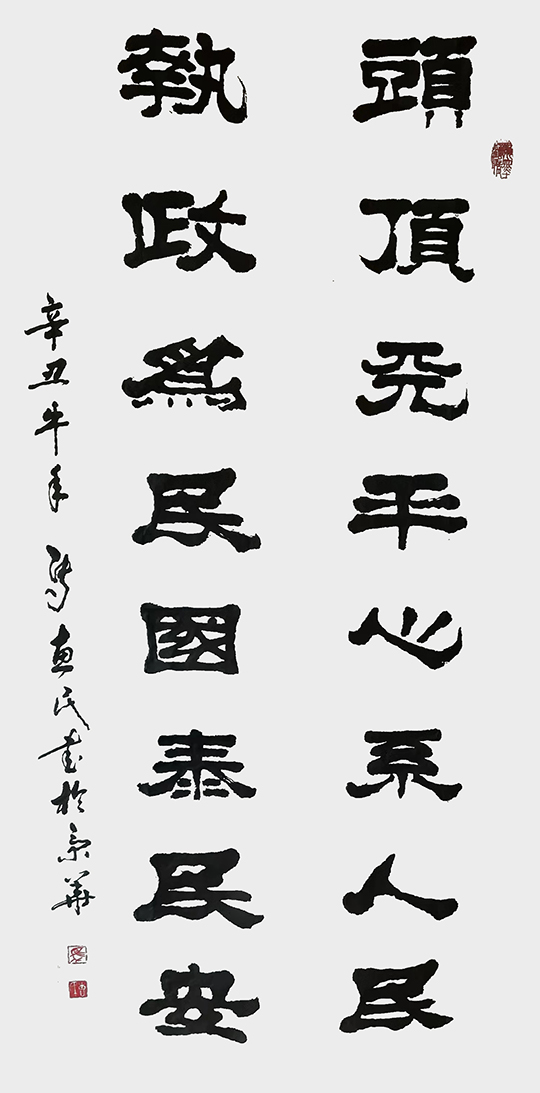 頭頂天平心系人民
執政爲民國泰民安
辛丑牛年 馮惠民書於京華